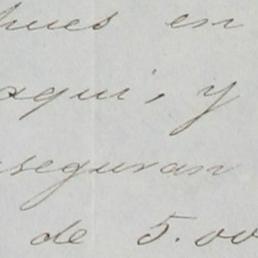 hues en
aqui, y
aseguran
de 5.00